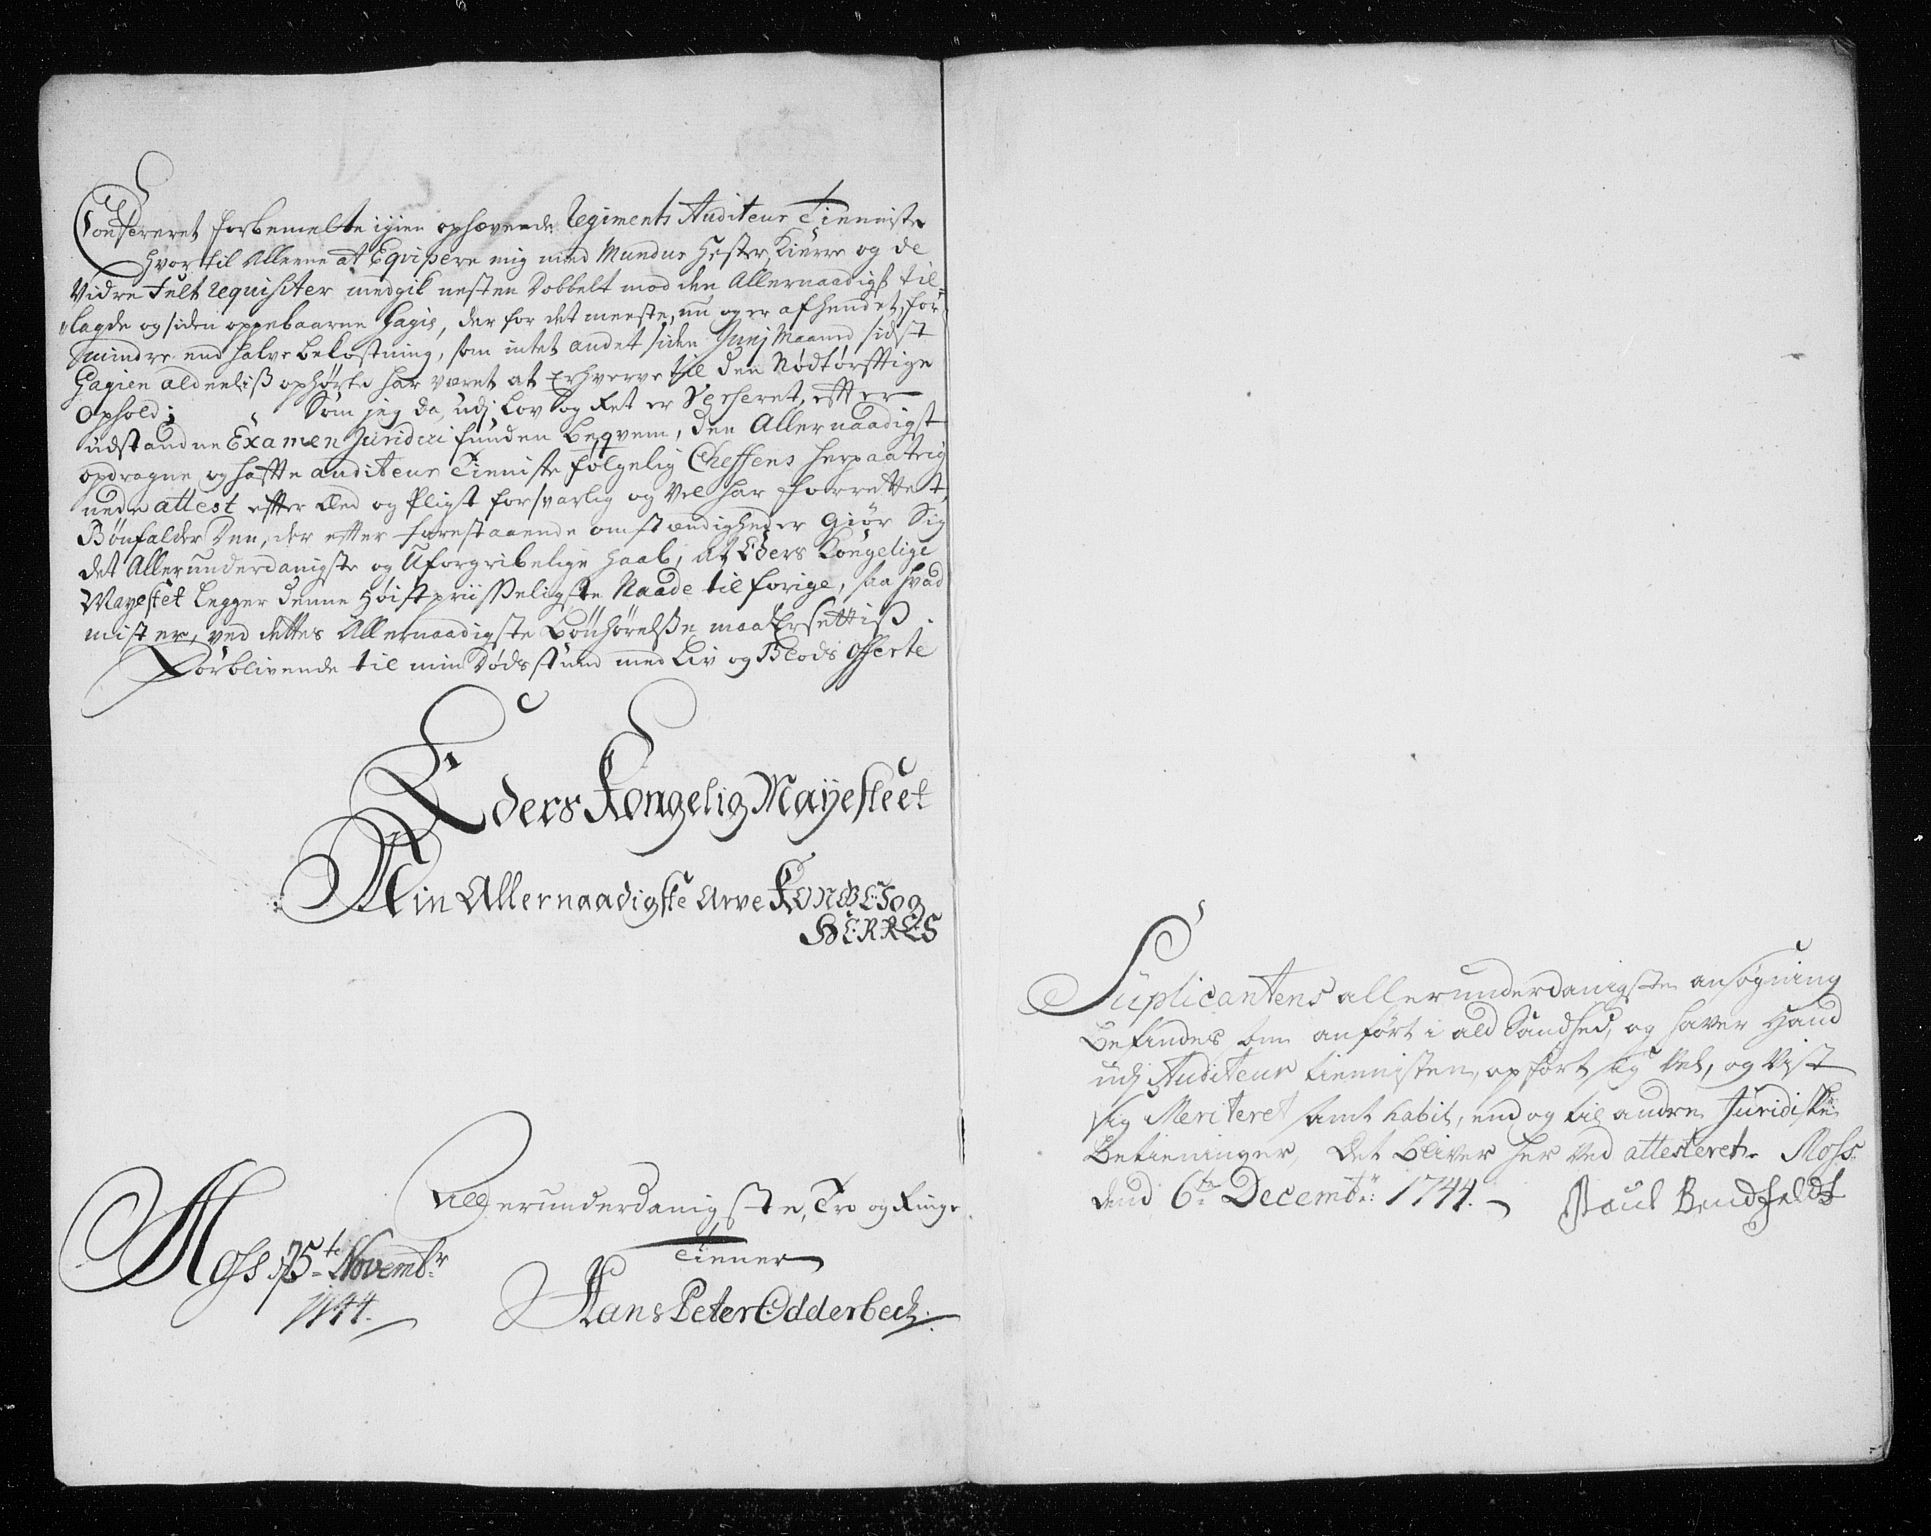 Confereret forbemelte igien ophævende Regiments Auditeur Tienniste
hvortil Alleene at Eqvipere mig med Mundur Hester, Kierre og de
Vidre Felt requisiter medgik nesten Dobbelt mod den Allernaadigst til-
lagde og siden oppebaarne Gagie, der for det meeste, nu og er afhendet, for
mindre end halve bekostning, som intet andet siden Junj Maaned sidst
Gagien aldeeliß ophørte har været at Erhverve til den Nødtørfftige
Ophold; Som jeg da, udj Lov og Ret er Verseret, effter
udstandne Examen Juridici funden beqvem, den Allernaadigst
opdragne og haffte auditeur Tienniste følgelig Cheffens herpaateig
nede attest effter Eed og Pligt forsvarlig og Vel har forrettet,
Bønfalder Den, der effter forestaaende omstændigheder Giør Sig
det Allerunderdanigste og Uforgribelige haab, at Eders Kongelige
Mayestet legger denne Høistpriisseligste Naade til forige, saa hvad
mist er, ved dettes Allernaadigste Bønhørelße maa Ersettiß.
Forblivende til min Dødsstund med Liv og Blods offerte
Eders Kongelig Mayesteet
Min Allernaadigste Arve Konges og
HERRES
Allerunderdanigste, Tro og Ringe
Tienner
Moss d 25te Novembr
1744.
Hans Peter Odderbech.
Suplicantens allerunderdanigste ansøgning
befindes som anført i ald Sandhed, og haver Hand
udj Auditeur tiennisten, opført sig vel, og vist
sig Meriteret samt habil, end og til andre Juridiske
betieninger, det bliver her ved attesteret. Moss
dend 6te Decembr: 1744.
Poul Bendfeldt